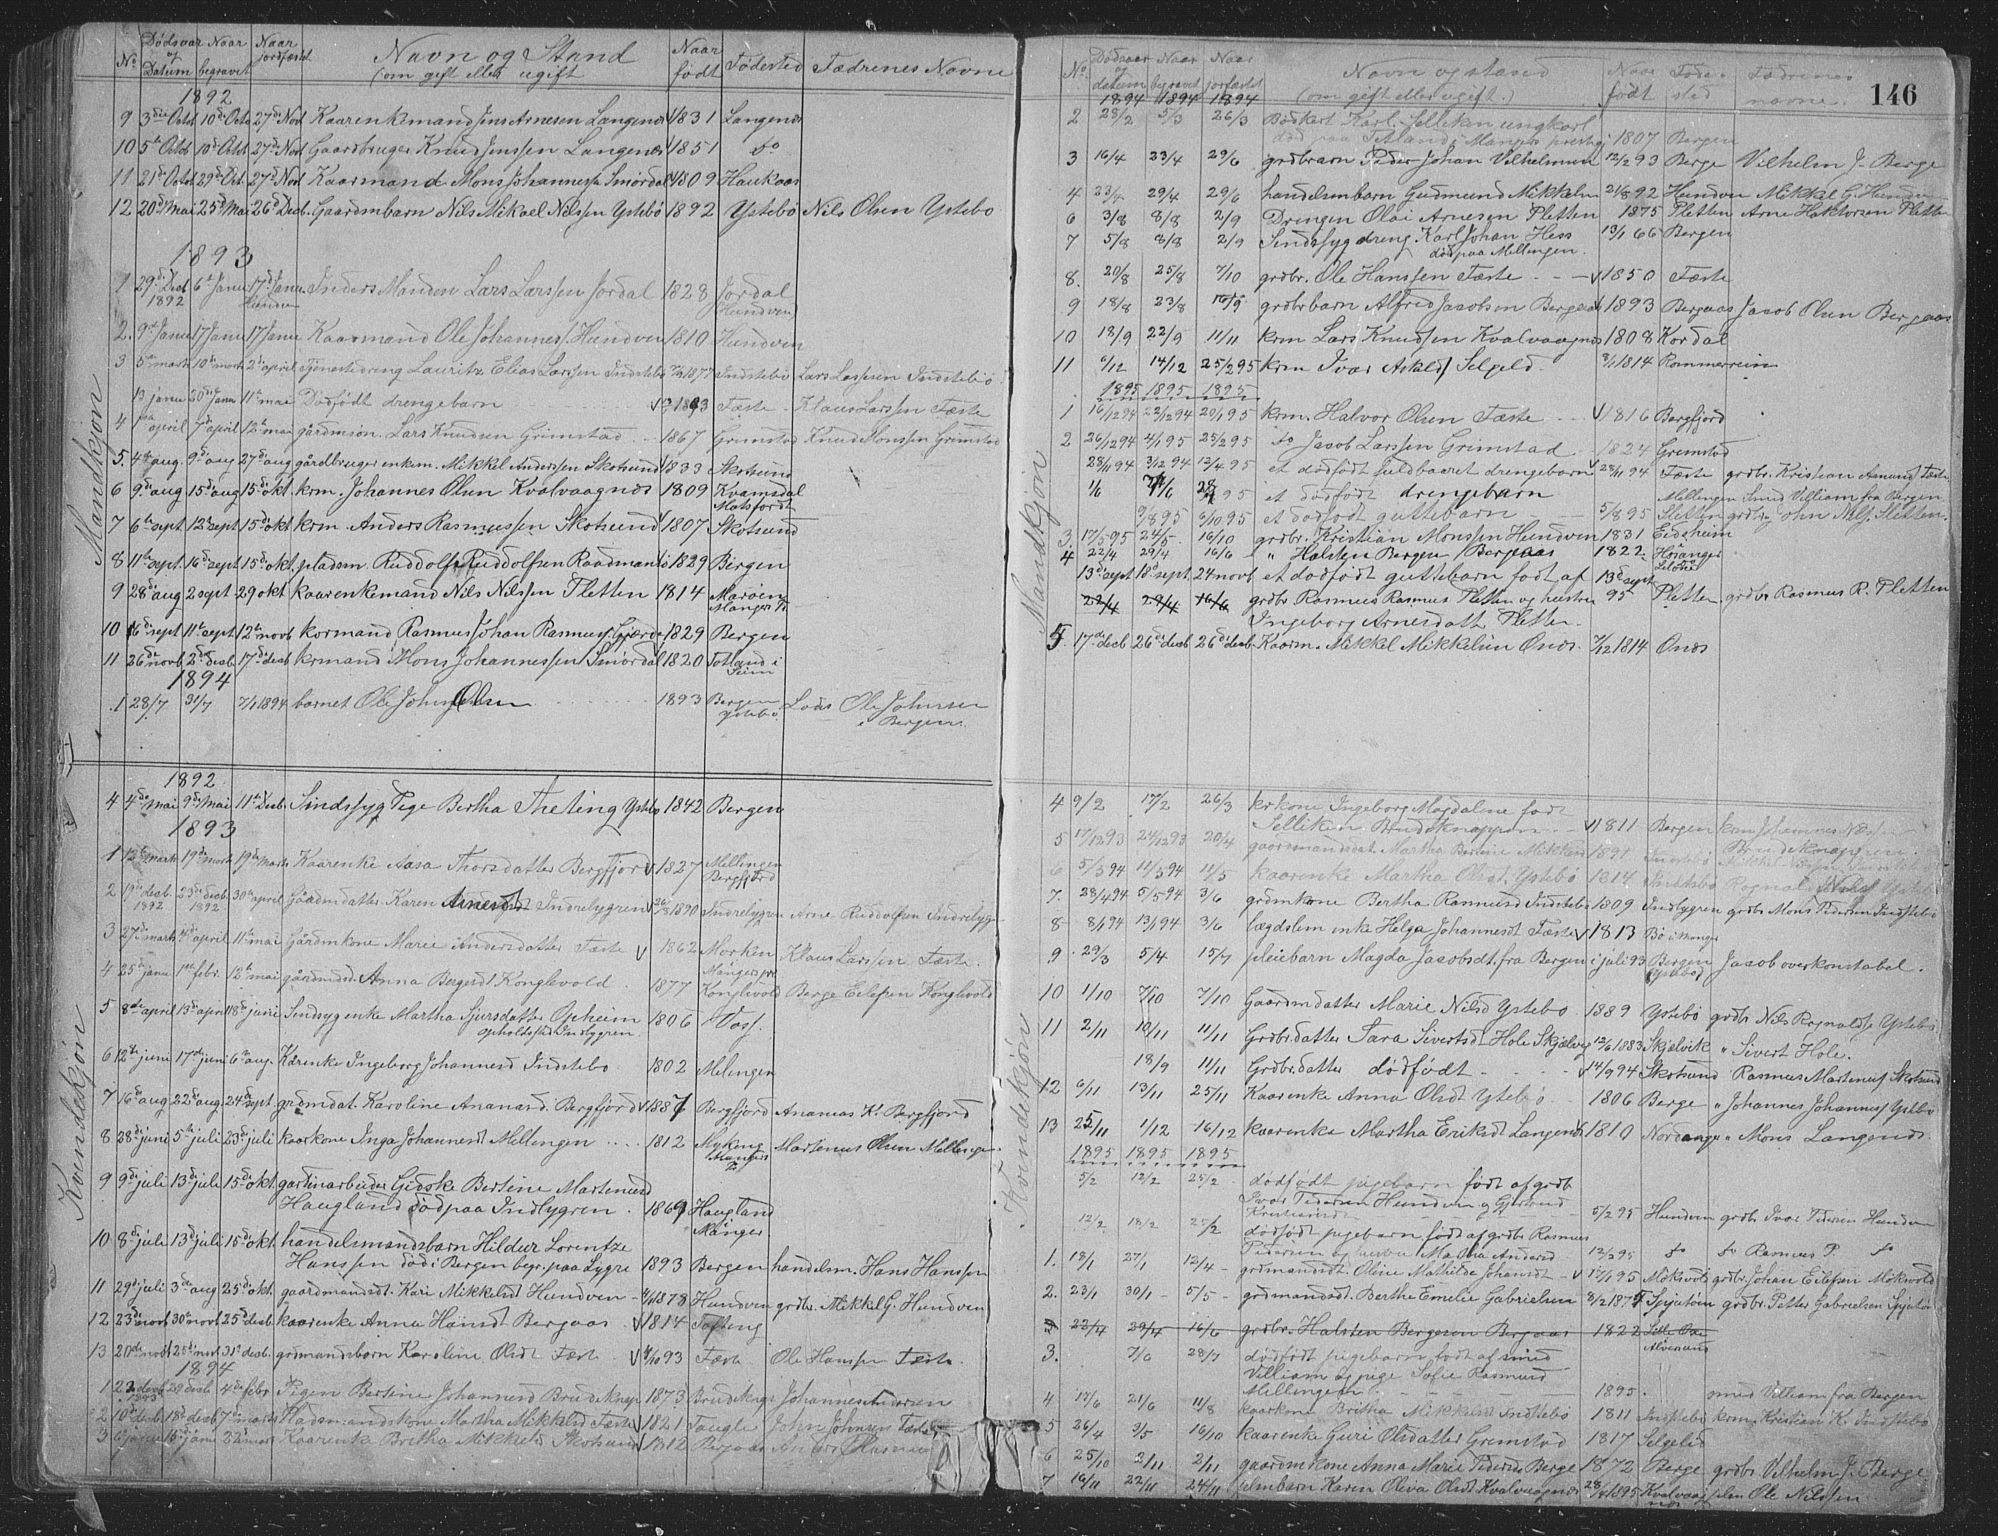 No. Dødsaar og Datum Naar begravet Naar jordfæstet Navn og Stand (om gift eller ugift) Naar født Fødested Fædrenes Navne
Mandkjøn
1892
9 3die Octo 10de Octo 27de Nov Kaarenkemand Jens Arnesen Langenæs 1831 Langenæs
10 5te Octob 10de Octob 27de Nov Gaardbruger Knud Jenssen Langenæs 1851 do
11 21de Octob 29de Oct. 27de Nov Kaarmand Mons Johannessen Smørdal 1809 Haukaas
12 20de Mai 25de Mai 26de Decb. Gaardmbarn Nils Mikael Nilssen Ystebø 1892 Ystebø Nils Olsen Ystebø
1893
1 29de Decb 1892 6te Janu 17de Janu Hundven Inders Manden Lars Larssen Jordal 1828 Jordal Hundven
2. 9de Janu 17 Janu 17 Janu Kaarmand Ole Johannes/ Hundven 1810 Hundven
3 5te marts 10de marts 2de april Tjenestedreng Lauritz Elias Larssen Indstebø 1877 Indstebø Lars Larssen Indstebø
13 janu 20de Janu 11te mai Dødfødt drengebarn 1893 Fæste Klaus Larssen Fæste
4 1ste april 7de april 12te mai gårdmsøn. Lars Knudsen Grimstad 1867 Grimstad Knud Monssen Grimstad
5. 4de aug. 9de aug 27de aug gårdbruger enkem. Mikkel Anderssen Skotsund 1833 Skotsund
6 9de aug 15de aug 15de okt krm. Johannes Olsen Kvalvaagnæs 1809 Kvamsdal Matsfjordt
7 6te sept 12te sept 15de okt krm. Anders Rasmussen Skotsund 1807 Skotsund
8 11te sept. 16de sept 15de okt pladsm. Ruddolf Ruddolfsen Raadmans 1829 Bergen
9 28de aug 2 sept 29 okt kaarenkemand Nils Nilssen Fletten 1814 Marøen Manger
10 6te sept 11te sept 12te novb kormand Rasmus Johan Rasmuss. Gjærde 1829 Bergen
11 26de novb 2de decb. 17de decb krmand Mons Johannessen Smørdal 1820 Totland i Seim
1894
1 28/7 31/7 7/1 1894 barnet Ole Johnssen Olsen 1893 Bergen Ystebø Lods Ole Johnsen i Bergen
Kvindekjøn
1892
4 4de mai 9de Mai 11te Decb. Sindssyg Pige Bertha Theting Ystebø 1842 Bergen
1893
1 12te marts 19de marts 19de Marts Kaarenke Aasa Thorsdatter Bergfjord 1827 Mellingen Bergfjord
2 19de decb. 1892 23de decb. 1892 30te april Gaardmdatter Karen Arnesdt Indrelygren 26/8 1890 Indrelygren Arne Ruddolfsen Indrelygr.
3 27de marts 4de april 11te mai Gårdmkone Marie Andersdatter Fæste 1862 Morken Mangers pr. Klaus Larssen Fæste
4 25de janu 1ste febr. 12te mai gårdmsd. Anna Bergesdt Konglevold 1877 Konglevold Berge Eilefsen Konglevold
5 8de april 13de april 18de juni Sindsyg enke Martha Sjursdatter Opheim opholdssted Indlygren 1806 Voss.
6 12te juni 17de juni 6te aug. Kårenke Ingeborg Johannesd Indstebø 1802 Melingen
7 16de aug 22de aug. 24de sept grdmdat. Karoline Ananasd. Bergfjord 1887 Bergfjord Ananias K. Bergfjord
8 28de juni 5te juli 23de juli kaarkone Inga Johannesdt Mellingen 1812 Myking Mangers P. Martenus Olsen Mellingen
9 9de juli 13de juli 15de okt gardinarbeider Gidske Bertine Martenusd Haugland død paa Indlygren 1869 Haugland Manger
10 8de juli 13de juli 15de okt. handelsmandsbarn Hildur Lorentze Hanssen død i Bergen begr. paa Lygre 1893 Bergen handelsm. Hans Hanssen
11 29de juli 3de aug 25de okt. gaardmandsdt. Kari Mikkelsdt Hundven 1878 Hundven grdbr. Mikkel G. Hundven
12 23de novb 30te novb 25de decb kaarenke Anna Hansdt Bergaas 1814 Tofting
13 20de novb 25de novb 31te decb. grdmandsbarn Karoline Olsdt Fæste 4/10 93 Fæste Ole Hanssen Fæste.
1894
1 22 decb 1893 29 decb 4de febr. Pigen Bertine Johannesd Brudeknap 1873 Brudeknap Johannes Iversen
2 10de decb. 18de decb 7de marts Pladsmandskone Martha Mikkelsd Fæste 1821 Taugle John Johnsen Fæste
3 janu 15de janu 22de mar. Kaarenke Britha Mikkelsd Skotsund 1812 Bergaas Anders Rasmus
146
No. Dødsaar og datum Naar begravet Naar jorfæstet Navn og stand (om gift eller ugift.) Naar født Føde-sted Fædrenes navne.
Mandkjøn
1894 1894 1894
2 28/2 3/3 26/3 Bødkert Karl Selliken ungkarl død paa Totland i Mangers prestegj. 1807 Bergen
3 16/4 23/4 29/6 grdbarn Peder Johan Vilhelmsen 12/2 93 Berge Vilhelm J. Berge
4 23/4 29/4 29/6 handelsmbarn Gudmund Mikkelsn 21/8 92 Hundven Mikkel G. Hundven
6 3/8 8/8 2/9 Drengen Olai Arnesen Fletten 1875 Fletten Arne Haktorsen Fletten
7 5/8 8/8 2/9 Sindssyg dreng. Karl Johan Hess død paa Mellingen. 13/1 66 Bergen
8. 20/8 25/8 7/10 grdbr. Ole Hanssen Fæste 1850 Fæste
9 18/8 23/8 16/9 grdbrbarn Alfred Jacobsen Bergaas 1893 Bergaas Jacob Olsen Bergaas
10 18/9 22/9 11/11 krm Lars Knudsen Kvalvaagnes 1808 Kordal
11 6/12 14/12 25/2 95 krm Ivar Askeld/ Selgeld. 8/1 1814 Rommerein
1895 1895 1895
1 16/12 94 22/12 94 20/1 95 krm. Halvor Olsen Fæste 1816 Bergfjord
2 26/12 94 4/1 95 25/2 95 do Jacob Larssen Grimstad 1824 Grimstad
28/11 94 3/12 94 12/4 95 et dødfødt fuldbaaret drengebarn 28/11 94 Fæste grdbr. Kristian Amund. Fæste
1/6 7/6 28/7 95 et dødfødt drengebarn Mellingen Smed Villiam fra Bergen
9/8 95 6/10 95 et dødfødt guttebarn 5/8 95 Sletten grdbr. John Nils. Sletten.
3. 17/5 95 24/5. 16/10 grdbr. Kristian Monssen Hundven 1831 Eidsheim
4 22/4 29/4 16/6 " Halsten Bergersen Bergaas 1822 Hosanger
13de sept 18de sept. 24 novb et dødfødt guttebarn født af 13de sept
22/4 29/4 16/6 grdbr Rasmus Rasmus. Fletten og hustru 95 Fletten. grdbr Rasmus R. Fletten
Ingeborg Arnesdatt Fletten
5 17de decb 26de decb 26de decb. Kaarm. Mikkel Mikkelsen Onæs. 7/12 1814 Onæs
Kvindekjøn
4 9/2 17/2 26/3 krkone Ingeborg Magdalene født Selliken Brudeknappen 1811 Bergen krm Johannes Nils. Brudeknappen
5 17/12 93 24/12 93 20/4 gaardmandsdat. Martha Bertine Mikkelsd 1891 Indstebø
6 5/3 94 11/3 94 11/5 kaarenke Martha Olsdt. Ystebø 1814 Indstebø Rognald Nils. Ystebø
7. 28/4 94 5/5 94 3/6 grdmkone Bertha Rasmusd Indstebø 1809 Indlygren grdbr Mons Pedersen Indstebø
8 8/1 94 13/1 94 3/6 lægdslem enke Helga Johannesdt Fæste 1813 Bø i Manger
9 29/3 5/4 15/7 pleiebarn Magda Jacobsdt. fra Bergen i juli 93 Bergen Ystebø Jacob overkonstabel.
10 1/10 7/10 7/10 Gaardmdatter Marie Nilsd Ystebø 1889 Ystebø grdbr Nils Rognalds. Ystebø
11 2/11 10/11 11/11 Grdbrdatter Sara Sivertsdt Hole Skjelvig 12/6 1883 Skjelvik " Sivert Hole.
18/9 11/11 Grdbr.datter dødfødt 14/9 94 Skotsund Rasmus Martenus/ Skotsund
12 6/11 13/11 25/11 Kaarenke Anna Olsdt Ystebø 1806 Berge " Johannes Johannes/ Ystebø
13 25/11 1/12 16/12 kaarenke Martha Eriksdt Langenæs 1810 Nordanger " Mons Langenæs.
1895 1895 1895
5/2 12/2 25/2 dødfødt pigebarn født af grdb Ivar Pedersen Hundven og Gjertrud Kristiansdt 5/2 95 Hundven grdbr Ivar Pedersen Hundven
12/2 18/2 25/2 dødfødt pigebarn født af grdbr Rasmus Pedersen og hustru Martha Andersd 12/2 95 do do Rasmus P. do
1. 18/1 27/1 12/4 grdmandsdt. Oline Mathilde Johansdt 12/1 95 Mökvold grdbr Johan Eilefsen Mökvold
2. 23/1 30/1 5/5 grdmandsdt. Berthe Emelie Gabrielsen 8/2 187 Spjutøen grdbr. Petter Gabrielsen Spjutøen
22/4 29/4 16/6 grdbr. Halsten Bergesen Bergaas 1822
3. 7/6 28/7 dødfødt pigebarn født af smed Villiam og pige Sofie Rasmusd Mellingen 1895. smed Villiam fra Bergen
4 17/6 21/6 11/8 kaarkone Britha Mikkelsd Indstebø 1811 Indstebø krm. Kristian K. Indstebø
5 26/4 3/5 16/10 kaarenke Guri Olsdatter Gremstad 1817 Selgelid
6 25/10 2/11 2/11 gaardmkone Anna Marie Pedersd Berge 1872 Berge grdbr Vilhelm J. Berge
7 16/11 22/11 24/11 plmbarn Karen Oleva Olsdt Kvalvaagnæs 28/ 1895 Kvalvaagnæs plm Ole Nilssen